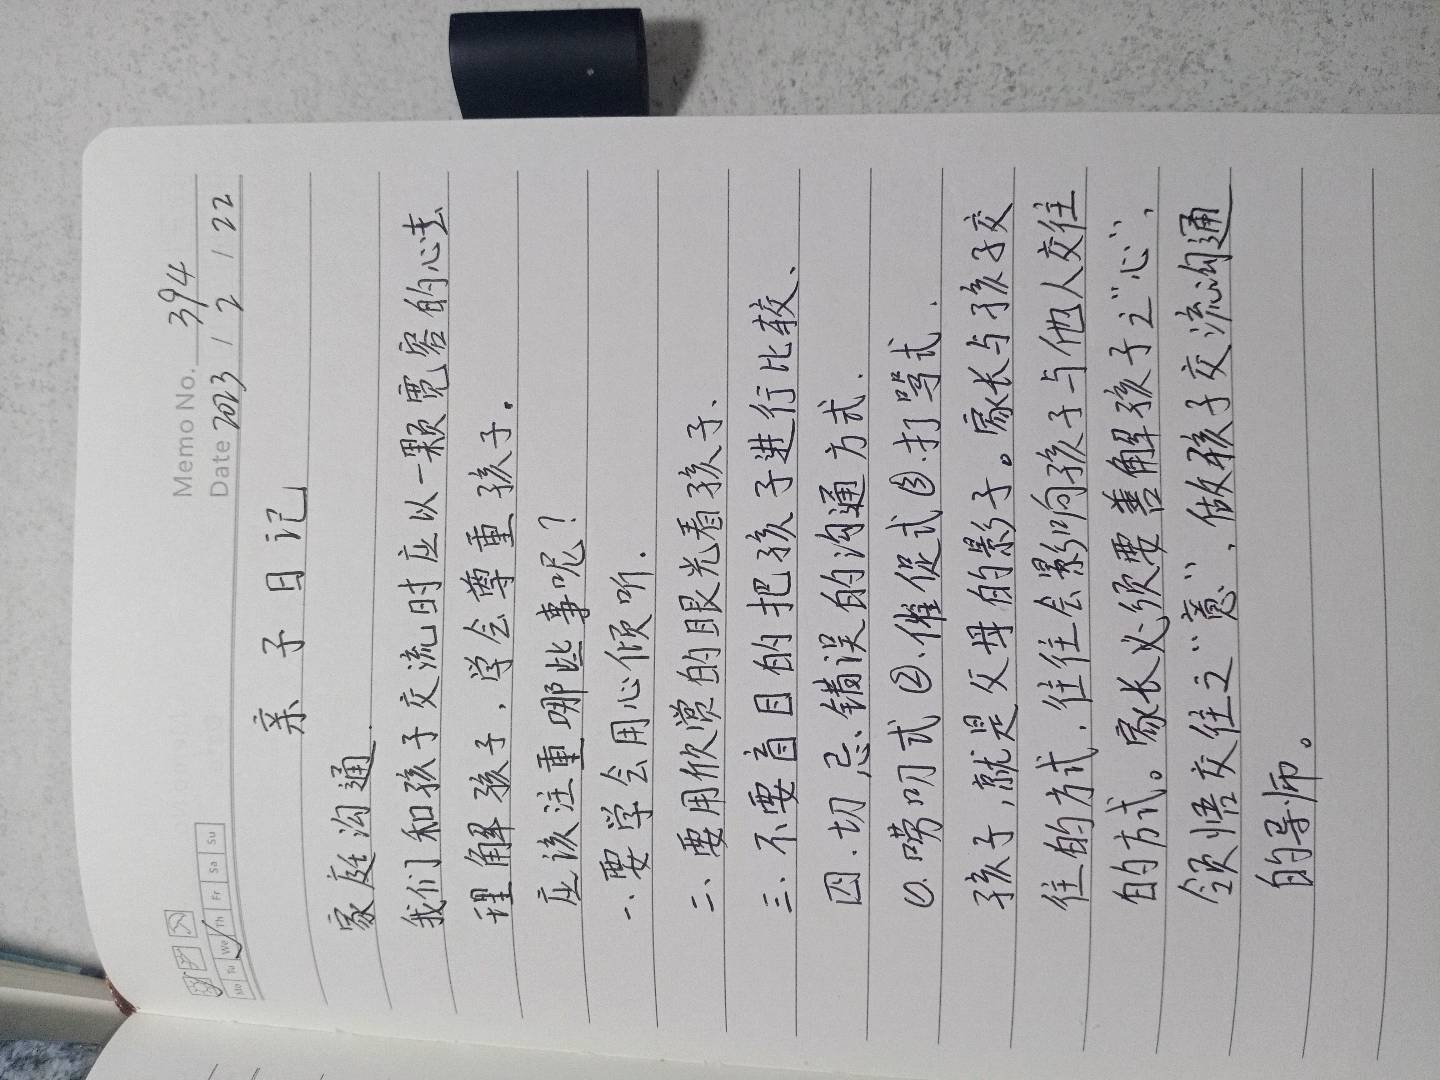 Memo No. 394
Mo Tu We Th Fr Sa Su
Date 2023 / 2 / 22
亲子日记
家庭沟通.
我们和孩子交流时应以一颗宽容的心去
理解孩子,学会尊重孩子.
应该注重哪些事呢?
一、要学会用心倾听.
二、要用欣赏的眼光看孩子、
三、不要盲目的把孩子进行比较、
四.切忌错误的沟通方式.
①.唠叨式②.催促式③.打骂式.
孩子,就是父母的影子。家长与孩子交
往的方式,往往会影响孩子与他人交往
的方式。家长必须要善解孩子之“心”,
领悟交往之“意”,做孩子交流沟通
的导师。